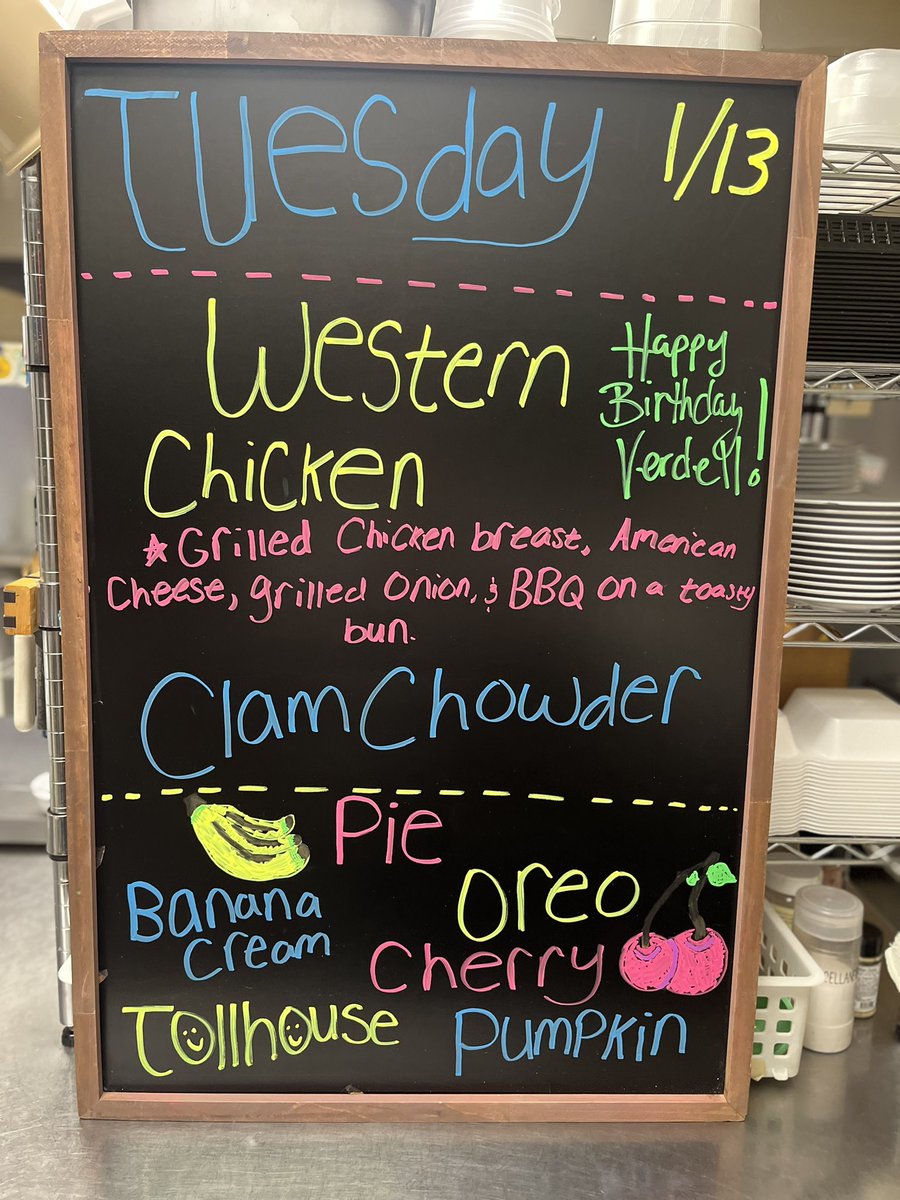 Tuesday 1/13
Western
Chicken
Happy
Birthday
Verdell!
*Grilled Chicken breast, American
Cheese, grilled onion, & BBQ on a toasty
bun.
Clam Chowder
Pie
Banana
Cream
Oreo
Cherry
Tollhouse
Pumpkin